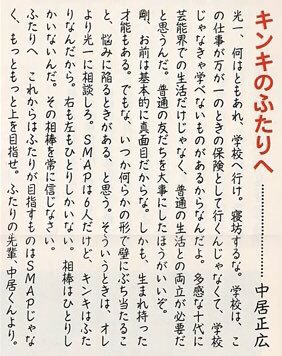 キンキのふたりへ ………………… 中居正広
光一、何はともあれ、学校へ行け。寝坊するな。学校は、こ
の仕事が万が一のときの保険として行くんじゃなくて、学校
じゃなきゃ学べないものがあるからなんだよ。多感な十代に
芸能界での生活だけじゃなく、普通の生活との両立が必要だ
と思うんだ。普通の友だちを大事にしたほうがいいぞ。
剛、お前は基本的に真面目だからな。しかも、生まれ持った
才能もある。でもな、いつか何らかの形で壁にぶち当たるこ
と、悩みに陥るときがある、と思う。そういうときは、オレ
より光一に相談しろ。SMAPは6人だけど、キンキはふた
りなんだから。右も左もひとりしかいない。相棒はひとりし
かいないんだ。その相棒を常に信じなさい。
ふたりへ　これからはふたりが目指すものはSMAPじゃな
く、もっともっと上を目指せ。ふたりの先輩、中居くんより。